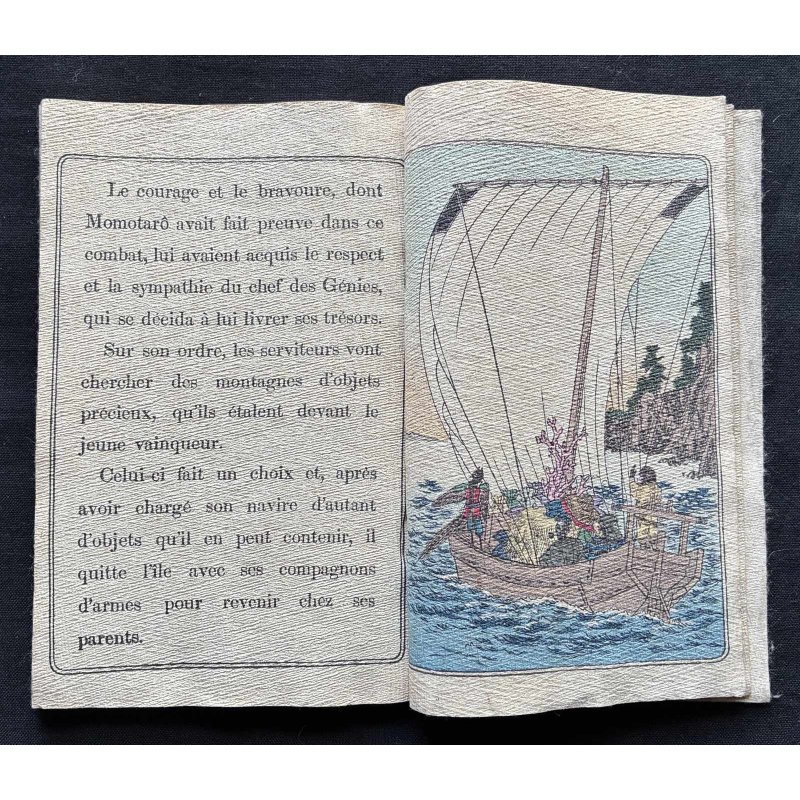 Le courage et le bravoure, dont
Momotarô avait fait preuve dans ce
combat, lui avaient acquis le respect
et la sympathie du chef des Génies,
qui se décida à lui livrer ses trésors.
Sur son ordre, les serviteurs vont
chercher des montagnes d'objets
précieux, qu'ils étalent devant le
jeune vainqueur.
Celui-ci fait un choix et, après
avoir chargé son navire d'autant
d'objets qu'il en peut contenir, il
quitte l'île avec ses compagnons
d'armes pour revenir chez ses
parents.